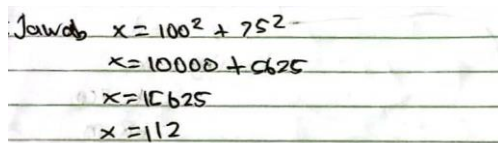 Jawab x = 100² + 75²
x = 10000 + 5625
x = 15625
x = 112